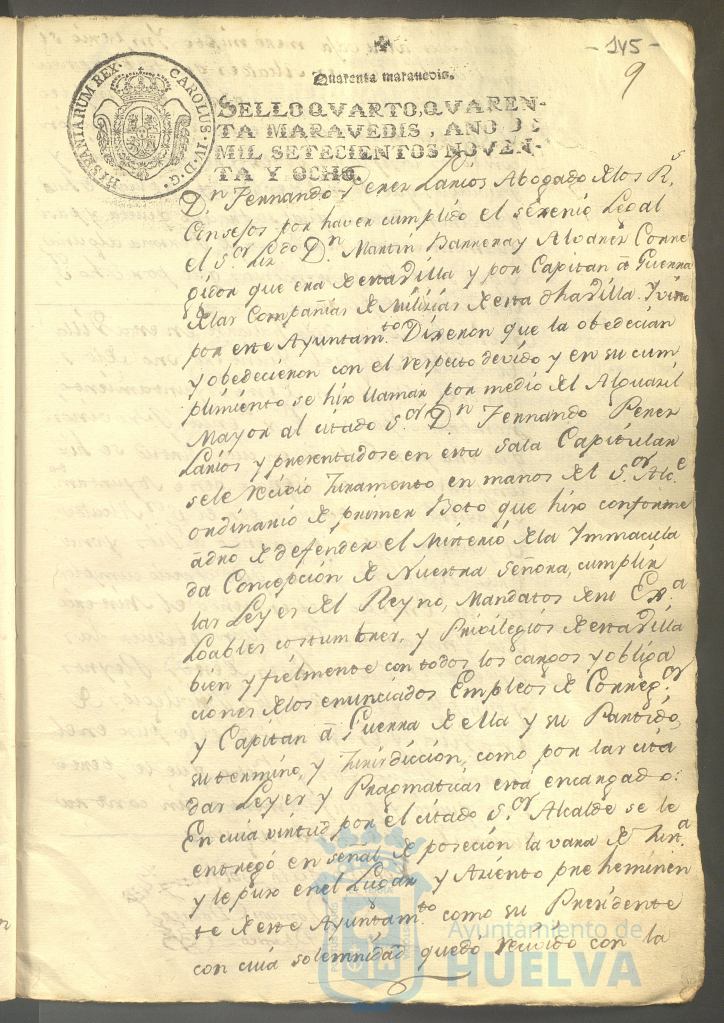 - 145 -
9
Quarenta maravedis.
HISPANIARUM REX. CAROLUS. IV. D. G.
SELLO QVARTO, QVAREN-
TA MARAVEDIS, AÑO DE
MIL SETECIENTOS NOVEN-
TA Y OCHO.
Dn Fernando Perez Larios Abogado de los Rs
Consejos por haver cumplido el sexenio Legal
el Sor Lizdo Dn Martin Barrera y Alvarez Corre
gidor que era de esta Villa y por Capitan á Guerra
de las Compañias de Milizias de esta dha Villa. Y visto
por este Ayuntamto Dixeron que la obedecian
y obedecieron con el respecto devido y en su cum
plimiento se hizo llamar por medio del Alguazil
Mayor al citado Sor Dn Fernando Perez
Larios y presentadose en esta Sala Capitular
se le recivio Juramento en manos del Sor Alce
ordinario de primer Boto que hizo conforme
á dro de defender el Misterio de la Immacula
da Concepción de Nuestra Señora, cumplir
las Leyes del Reyno, Mandatos de su Exa
Loables costumbres, y Privilegios de esta Villa
bien y fielmente con todos los cargos y obliga
ciones de los enunciados Empleos de Corregor
y Capitan á Guerra de ella y su Partido,
su termino, y Jurisdiccion, como por las cita
das Leyes y Pragmaticas está encargado:
En cuia virtud por el citado Sor Alcalde se le
entregó en señal de poseción la vara de Justa
y le puso en el Lugar y Asiento pre heminen
te de este Ayuntamto como su Presidente
con cuia solemnidad quedó recivido con la
Ayuntamiento de
HUELVA